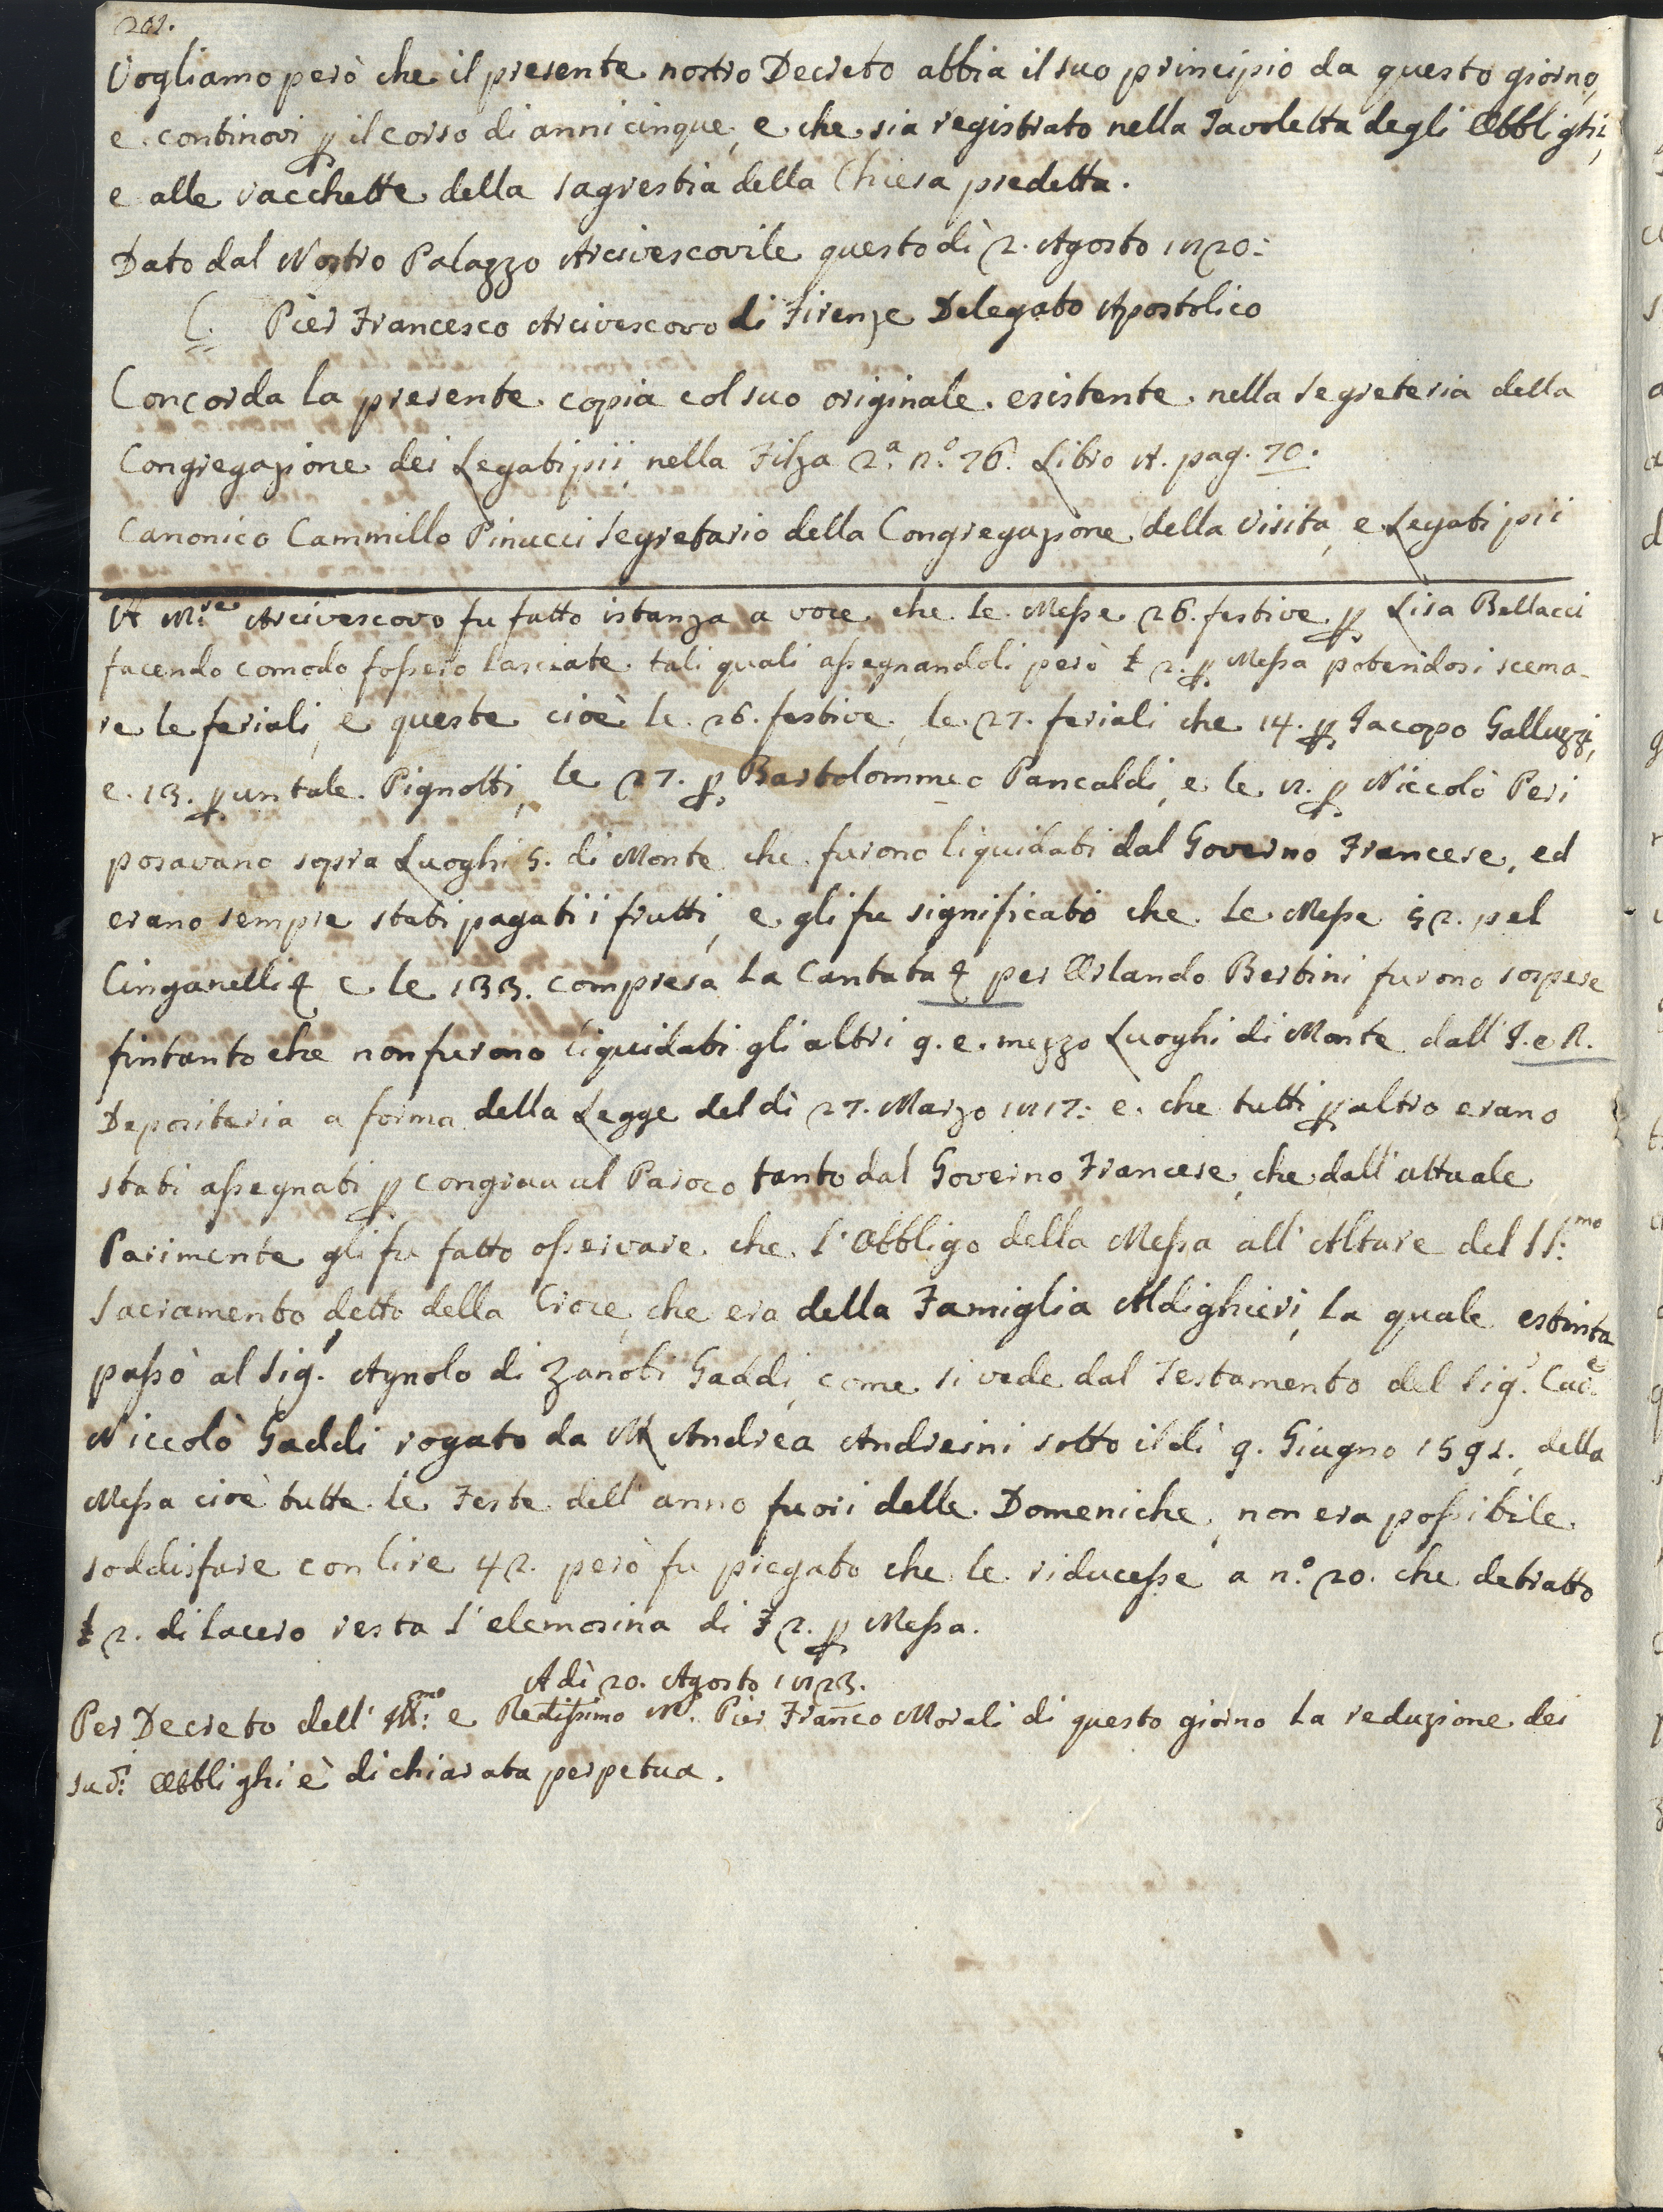 201.
Vogliamo però che il presente nostro Decreto abbia il suo principio da questo giorno,
e continovi p il corso di anni cinque, e che sia registrato nella Tavoletta degli Obblighi,
e alle vacchette della sagrestia della Chiesa predetta.
Dato dal Nostro Palazzo Arcivescovile questo dì 2. Agosto 1820:
C. Pier Francesco Arcivescovo di Firenze Delegato Apostolico
Concorda la presente copia col suo originale esistente nella Segreteria della
Congregazione dei Legati pii, nella Filza 2.a n.o 76. Libro A. pag. 70.
Canonico Cammillo Pinucci Segretario della Congregazione della Visita, e Legati pii
A M.re Arcivescovo fu fatto istanza a voce che le Messe 26. festive p Lisa Bellacci
facendo comodo fossero lasciate tali quali assegnandoli però £ 2. p Messa potendosi scema-
re le feriali, e queste cioè le 26. festive, le 27. feriali che 14. p Jacopo Galluzzi,
e 13. p un tale Pignotti, le 27. p Bartolommeo Pancaldi, e le 8. p Niccolò Peri
posavano sopra Luoghi 5. di Monte che furono liquidati dal Governo Francese, ed
erano sempre stati pagati i frutti, e gli fu significato che le Messe 52. pel
Cinganelli e le 133. compresa la Cantata per Orlando Bertini furono sospese
fintanto che non furono liquidati gli altri 9. e mezzo Luoghi di Monte dall' I. e R.
Depositeria a forma della Legge del dì 27. Marzo 1817: e che tutti p altro erano
stati assegnati p congrua al Paroco tanto dal Governo Francese, che dall' attuale
Parimente gli fu fatto osservare che l'Obbligo della Messa all' Altare del SS:mo
Sacramento detto della Croce, che era della Famiglia Aldighieri, la quale estinta
passò al Sig.r Agnolo di Zanobi Gaddi, come si vede dal Testamento del Sig.r Cav.e
Niccolò Gaddi rogato da Andrea Andreini sotto il dì 9. Giugno 1591., della
Messa cioè tutte le Feste dell' anno fuori delle Domeniche, non era possibile
soddisfare con lire 42. però fu pregato che le riducesse a n.o 20. che detratto
£ 2. di lacero resta l'elemosina di £ 2. p Messa.
A dì 20. Agosto 1823.
Per Decreto dell' Ill:mo e Redissimo M.r Pier Franco Morali di questo giorno la reduzione dei
sud.i Obblighi è dichiarata perpetua.